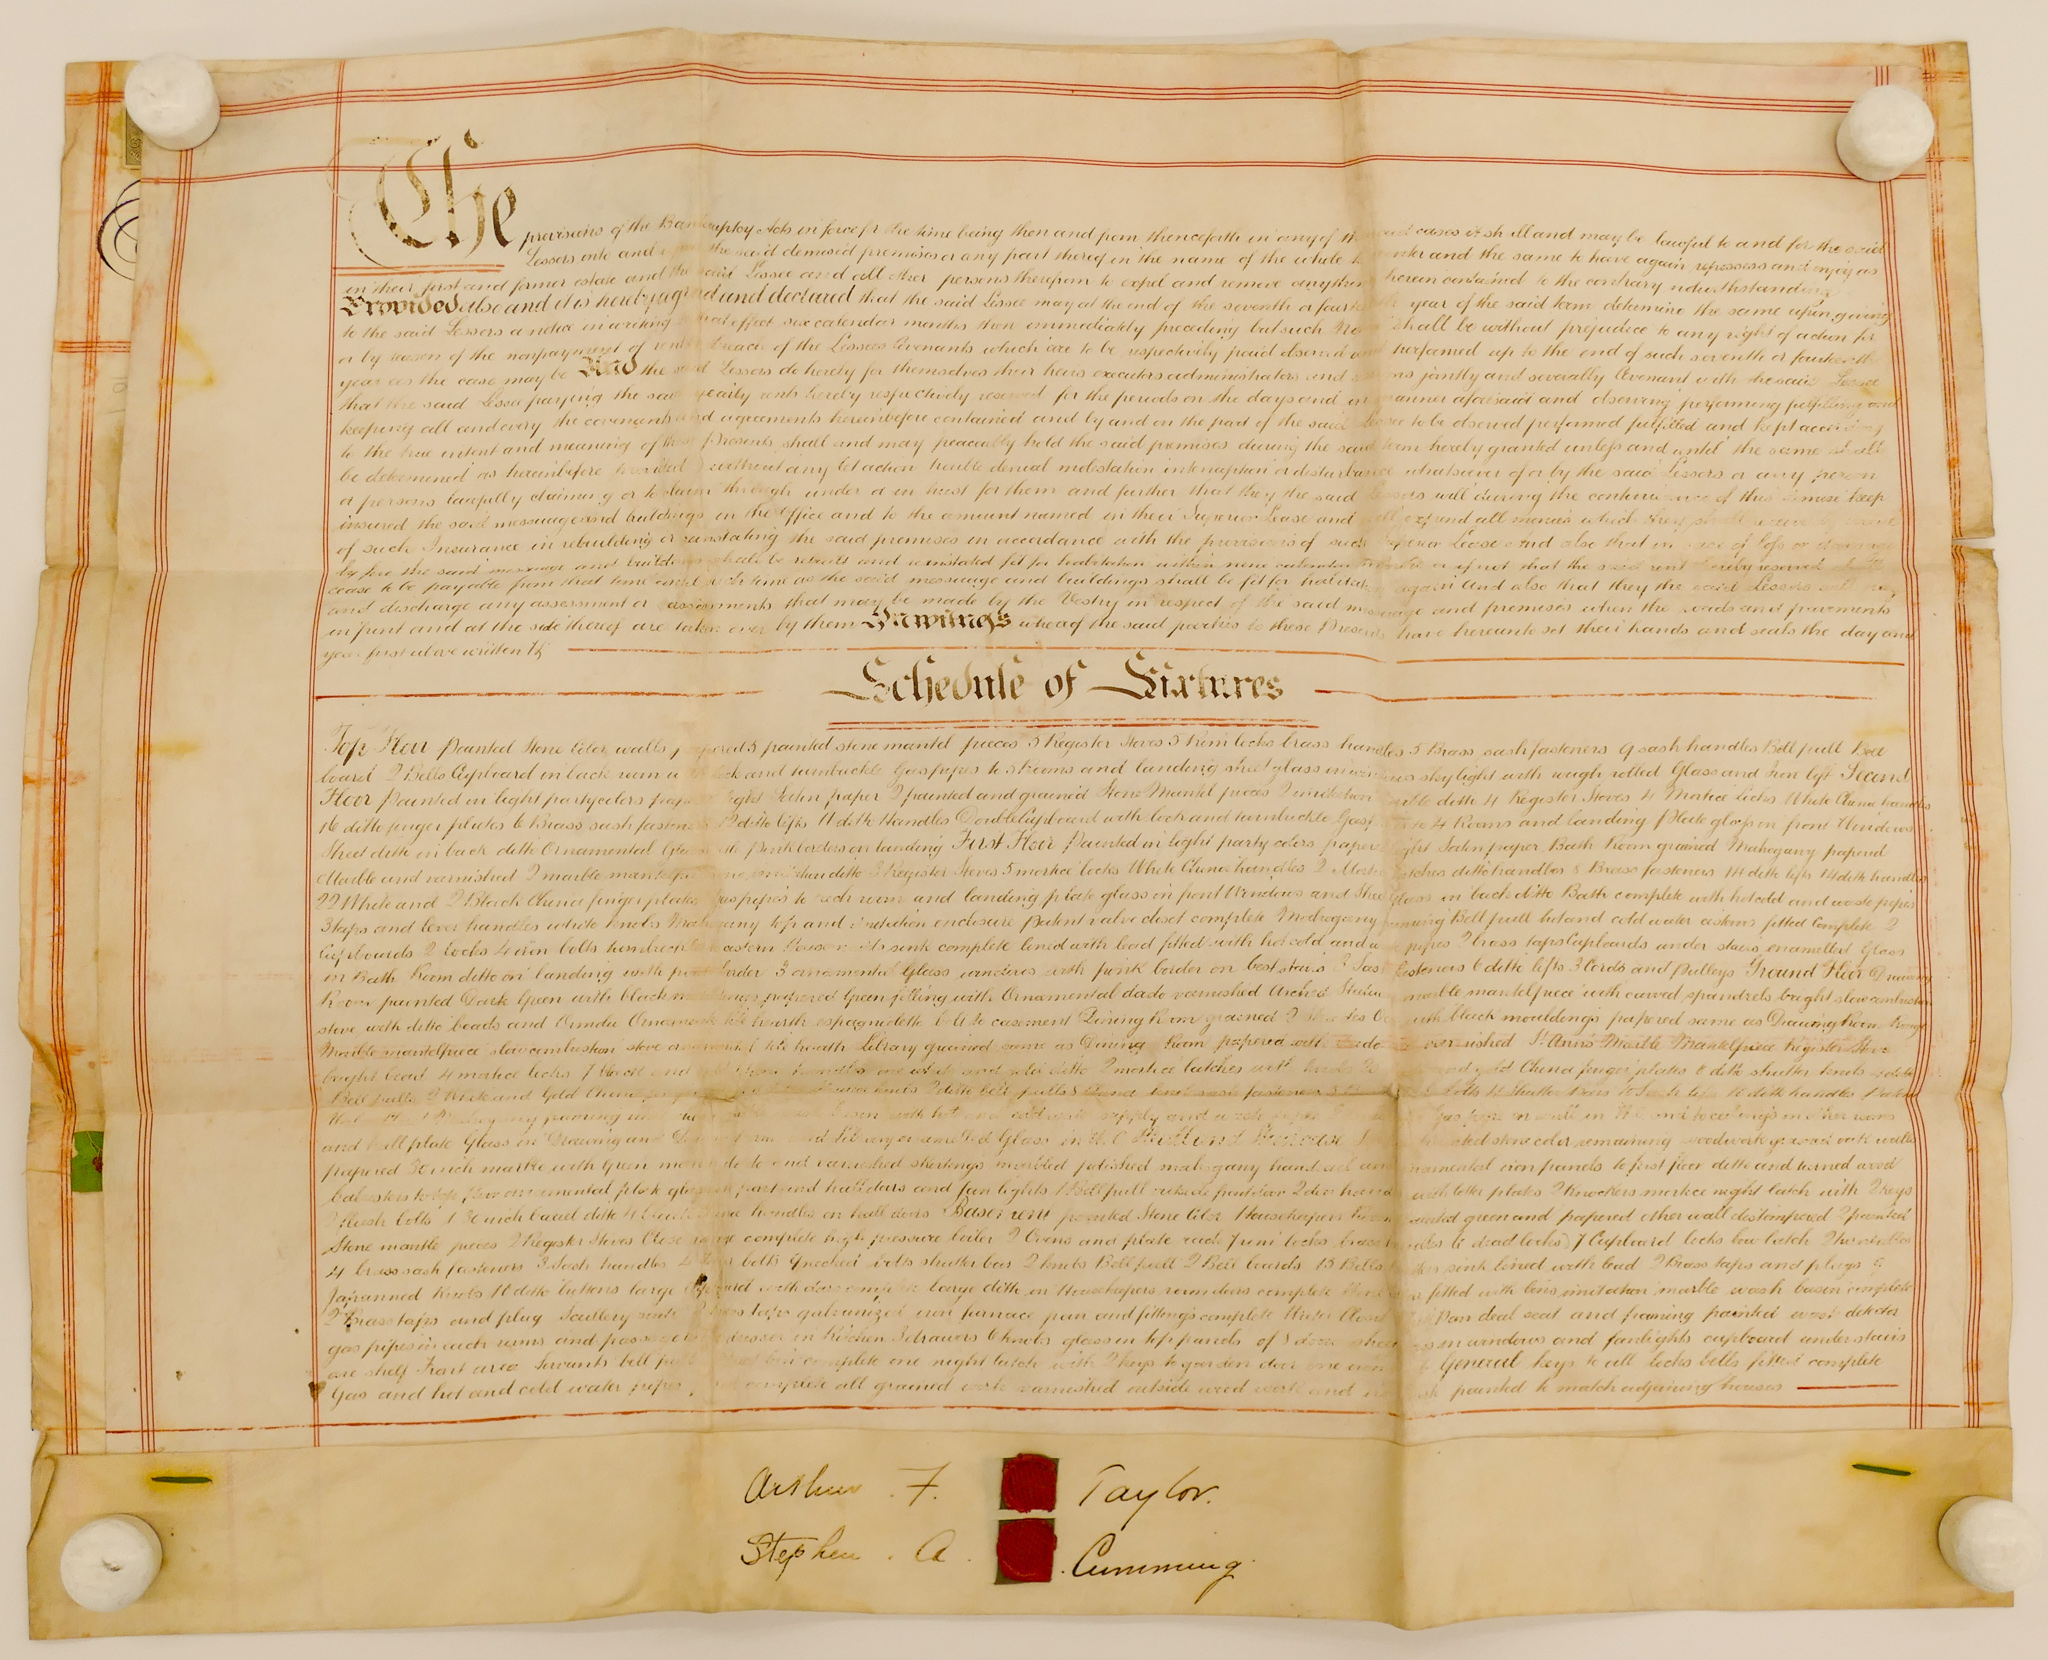 The provisions of the Bankruptcy Acts in force for the time being then and from thenceforth in any of the said cases it shall and may be lawful to and for the said
Lessors into and upon the said demised premises or any part thereof in the name of the whole to reenter and the same to have again repossess and enjoy as
in their first and former estate and the said Lessee and all other persons therefrom to expel and remove anything herein contained to the contrary notwithstanding
Provided also and it is hereby agreed and declared that the said Lessee may at the end of the seventh or fourteenth year of the said term determine the same upon giving
to the said Lessors a notice in writing to that effect six calendar months then immediately preceding but such Notice shall be without prejudice to any right of action for
or by reason of the nonpayment of rent or breach of the Lessees Covenants which are to be respectively paid observed and performed up to the end of such seventh or fourteenth
year as the case may be And the said Lessors do hereby for themselves their heirs executors administrators and assigns jointly and severally Covenant with the said Lessee
that the said Lessee paying the said yearly rents hereby respectively reserved for the periods on the days and in manner aforesaid and observing performing fulfilling and
keeping all and every the covenants and agreements hereinbefore contained and by and on the part of the said Lessee to be observed performed fulfilled and kept according
to the true intent and meaning of these Presents shall and may peaceably hold the said premises during the said term hereby granted unless and until the same shall
be determined as hereinbefore provided without any let action trouble denial molestation interruption or disturbance whatsoever of or by the said Lessors or any person
or persons lawfully claiming or to claim through under or in trust for them and further that they the said Lessors will during the continuance of this demise keep
insured the said messuage and buildings in the Office and to the amount named in their Superior Lease and will expend all monies which they shall receive
of such Insurance in rebuilding or reinstating the said premises in accordance with the provisions of such Superior Lease And also that in case of loss or damage
by fire the said messuage and buildings shall be rebuilt and reinstated fit for habitation within nine calendar months or if not that the said rent hereby reserved shall
cease to be payable from that time until such time as the said messuage and buildings shall be fit for habitation again And also that they the said Lessors will pay
and discharge any assessment or assessments that may be made by the Vestry in respect of the said messuage and premises when the roads and pavements
in front and at the side thereof are taken over by them In witness whereof the said parties to these Presents have hereunto set their hands and seals the day and
year first above written
Schedule of Fixtures
Top Floor Painted Stone Color walls papered 5 painted stone mantel pieces 5 Register Stoves 5 Rim locks brass handles 5 Brass sash fasteners 9 sash handles Bell pull Bell
board 2 Bells Cupboard in back room with lock and turnbuckle Gas pipes to 5 Rooms and landing sheet glass in windows skylight with rough rolled Glass and Iron lift Second
Floor Painted in light party colors papered light Satin paper 2 painted and grained Stone Mantel pieces 2 imitation marble ditto 4 Register Stoves 4 Mortice Locks White China handles
16 ditto finger plates 6 Brass sash fasteners 12 ditto lifts 11 ditto Handles Double Cupboard with lock and turnbuckle Gas pipes to 4 Rooms and landing Plate glass in front Windows
Sheet ditto in back ditto Ornamental Glass with Pink borders on landing First Floor Painted in light party colors papered light Satin paper Bath Room grained Mahogany papered
Marble and varnished 2 marble mantelpieces ditto 3 Register Stoves 5 mortice locks White China handles 2 Mortice latches ditto handles 8 Brass fasteners 14 ditto lifts 14 ditto handles
22 White and 2 Black China finger plates Gas pipes to each room and landing plate glass in front Windows and Sheet Glass in back ditto Bath complete with hot cold and waste pipes
3 taps and lever handles white knobs Mahogany top and imitation enclosure Patent valve closet complete Mahogany framing Bell pull hot and cold water cistern fitted complete 2
Cupboards 2 Locks 4 iron bolts sink complete lined with lead fitted with hot cold and waste pipes 2 brass taps Cupboards under stairs enamelled Glass
in Bath Room ditto on landing with pink border 3 ornamental Glass windows with pink border on best stairs 3 Sash fasteners 6 ditto lifts 3 Cords and Pulleys Ground Floor Drawing
Room painted Dark Green with black mouldings papered Green filling with Ornamental dado varnished Arched Statuary marble mantelpiece with carved spandrels bright slow combustion
stove with ditto beads and Ormolu Ornaments tile hearth espagniolette bolt to casement Dining Room grained with black mouldings papered same as Drawing Room Rouge
Marble mantelpiece slow combustion stove tile hearth Library grained same as Dining Room papered with dado varnished St Anns Marble Mantelpiece Register Stove
bright bead 4 mortice locks 2 mortice latches with knobs Gold China finger plates 6 ditto shutter knobs
Bell pulls 2 White and Gold China 2 ditto bell pulls sash fasteners bolts 4 Shutter Bars to Sash lifts 10 ditto handles
Mahogany framing with hot and cold supply and waste pipes Gas pipe in wall in W.C. and to ceilings in other rooms
and hall plate Glass in Drawing and Dining Room and Library enamelled Glass in W.C. Hall and Staircase painted stone color remaining woodwork grained oak walls
papered 30 inch marble with Green dado and varnished skirtings marbled polished mahogany handrail and ornamental iron panels to first floor ditto and turned wood
balusters to top floor ornamental plate glass in front and hall doors and fan lights 1 Bell pull outside front door 2 door handles with letter plates 2 Knockers mortice night latch with 2 keys
2 flush bolts 1 30 inch barrel ditto handles on hall doors Basement painted Stone Color Housekeepers Room painted green and papered other wall distempered 2 painted
Stone mantle pieces 2 Register Stoves Close range complete high pressure boiler 2 Ovens and plate rack 7 rim locks brass handles 6 dead locks 7 Cupboard locks bow latch
4 brass sash fasteners 3 Sash handles bolts 9 necked bolts shutter bar 2 knobs Bell pull 2 Bell boards 13 Bells sink lined with lead 2 Brass taps and plugs
Japanned Knobs 11 ditto buttons large Cupboard with doors complete large ditto in Housekeepers room doors complete fitted with bins imitation marble wash basin complete
2 Brass taps and plug Scullery sink galvanized iron furnace pan and fittings complete Water Closet Pan deal seat and framing painted
gas pipes in each room and passage dresser in Kitchen 3 drawers 6 knobs glass in top panels of 1 door sheet glass in windows and fanlights cupboard under stairs
one shelf Front area Servants bell pull dust bin complete one night latch with 2 keys to garden door one iron General keys to all locks bells fitted complete
Gas and hot and cold water pipes complete all grained work varnished outside wood work and painted to match adjoining houses
Arthur . F. Taylor.
Stephen . A . Cumming.